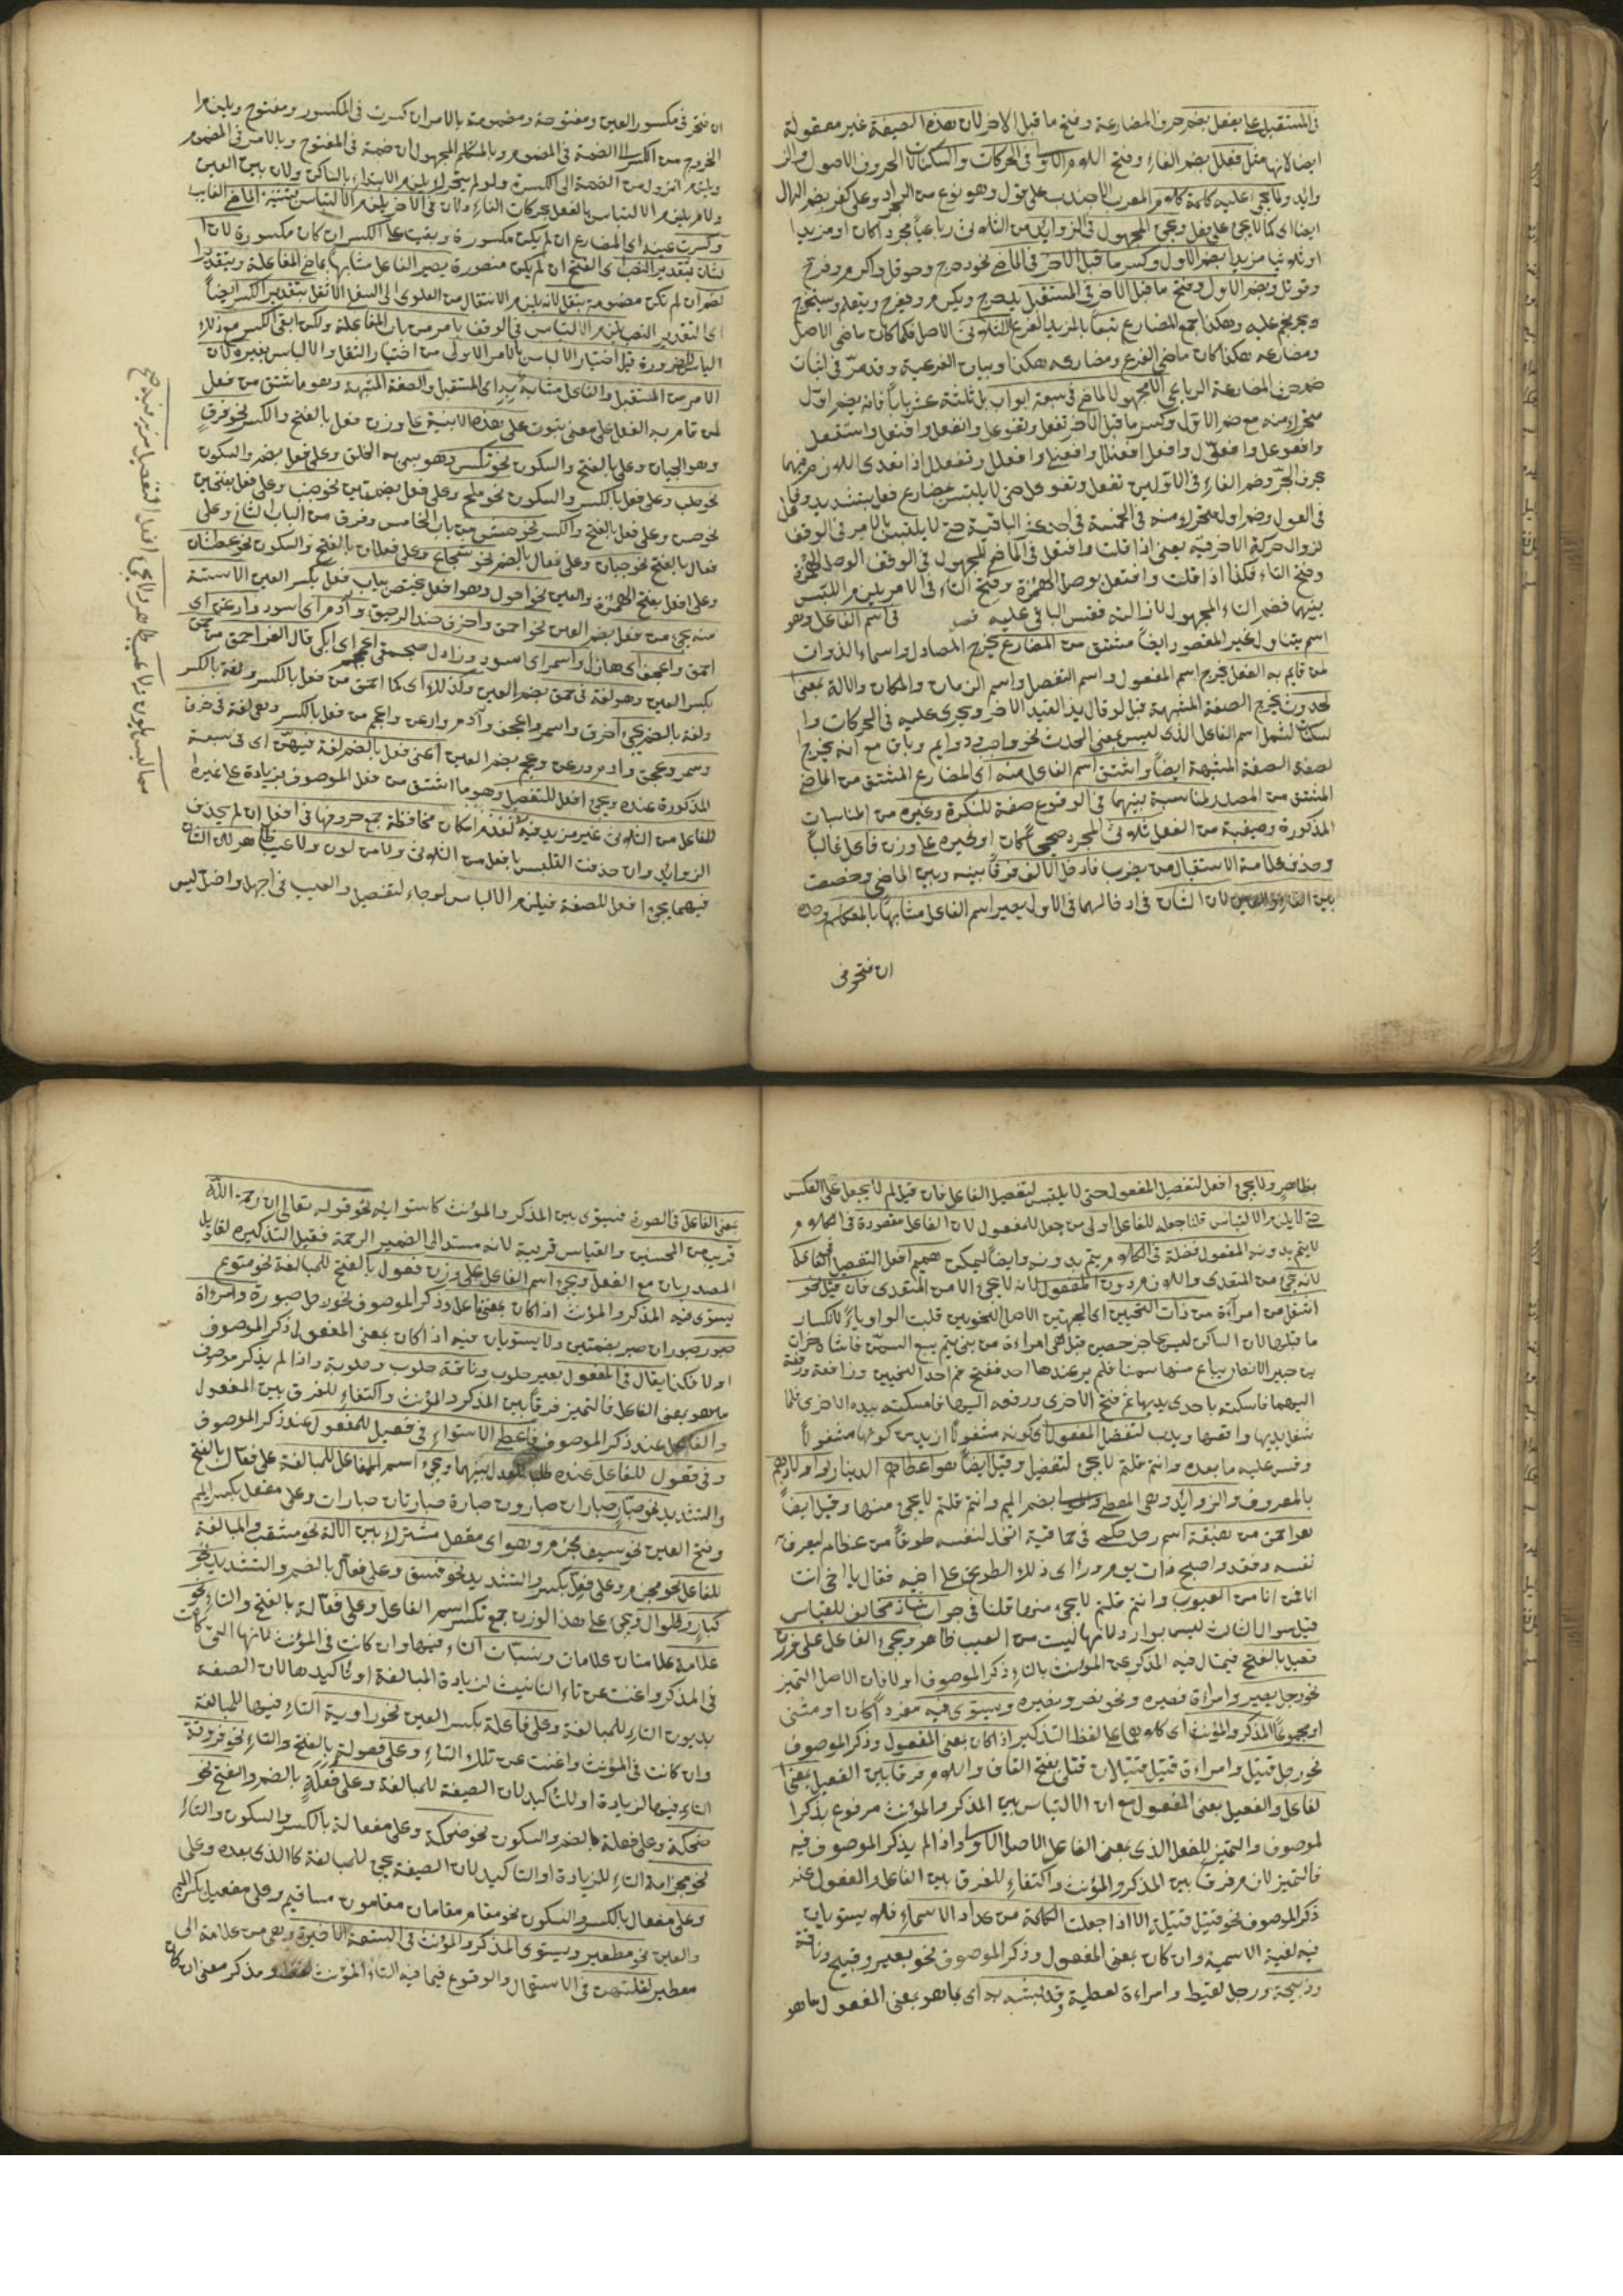 في المستقبل على يفعل بضم حرف المضارعة وفتح ما قبل الاخر لان هذه الصيغة غير معقولة
ايضا لانها مثل فعلل بضم الفاء وفتح اللام الاول في الحركات والسكنات الحروف الاصول والز
وايد ولا يجئ عليه كلمة كلام المعرب الا جندب على قول وهو نوع من الجراد وعلى
ايضا اى كما لا يجئ على يفعل ويجئ المجهول في الزوايد من الثلاثى رباعيا مجردا كان او مزيدا
او ثلاثيا مزيدا بضم الاول وكسر ما قبل الاخر في الماضى نحو دحرج وحوقل واكرم وفرح
وقوتل وبضم الاول وفتح ما قبل الاخر في المستقبل يدحرج ويكرم ويفرح
ويحرنجم عليه وهكذا جمع المضارع تبعا بالمزيد الفرع الثلاثى الاصل فكما كان ماضى الاصل
ومضارعه هكذا كان ماضى الفرع ومضارعه هكذا وبيان الفرعية وقد مر في اثبات
ضم حرف المضارعة الرباعى المجهول الماضى في سبعة ابواب بل ثلثة عشر بابا فانه يضم اول
متحرك منه مع ضم الاول وكسر ما قبل الاخر تفعل وتفوعل وانفعل وافتعل واستفعل
وافعوعل وافعول وافعل وافعنلل وافعنلى وافعلل وتفعلل اذا تعدى اللازم منهما
بحرف الجر وضم الفاء في الاولين تفعل وتفوعل حتى لا يلتبس بمضارع فعل بتشديد وفاعل
وضم اول متحرك منه في الخمسة في احدى الباقية حتى لا يلتبس بالامر في الوقف
لزوال حركة الاخر فيه يعنى اذا قلت وافتعل في الماضى للمجهول في الوقف الوصل الهمزة
وفتح التاء فكذا اذا قلت وافتعل بوصل الهمزة وفتح التاء في الامر يلزم اللبس
بينهما فضم التاء المجهول لازالته فقس الباقى عليه فصل في اسم الفاعل وهو
اسم يتناول لغير المقصور ايضا مشتق من المضارع يخرج المصادر واسماء الذوات
لمن قام به الفعل يخرج اسم المفعول واسم التفصيل واسم الزمان والمكان والالة بمعنى
لحدوث يخرج الصفة المشبهة قيل لو قال بدل القيد الاخر ويجرى عليه في الحركات وا
لسكنات لشمل اسم الفاعل الذى ليس بمعنى الحدث نحو واجب ودايم وباق مع انه يخرج
لصفة الصفة المشبهة ايضا واشتق اسم الفاعل منه اى المضارع المشتق من الماضى
المشتق من المصدر لمناسبة بينهما في الوقوع صفة للنكرة وغيره من المناسبات
المذكورة وصيغته من الفعل ثلاثى المجرد صحيحا كان او غيره على وزن فاعل غالبا
وحذف علامة الاستقبال من يضرب فادخل الالف فرقا بينه وبين الماضى وخصت
بين الفاء والعين لان في ادخالهما في الاول يصير اسم الفاعل مشابها بالمتكلم وحده
ان فتحو في
ان فتحو في مكسور العين ومفتوحة ومضمومة بالامر ان كسرت في المكسور ومفتوح ويلزم
الخروج من الكسر الى الضمة في المضموم وبالمتكلم المجهول ان ضمة في المفتوح وبالامر في المضموم
ويلزم النزول من الضمة الى الكسرة ولو لم يتحرك لا يلزم الابتداء بالساكن ولان بين العين
ولام يلزم الالتباس بالفعل بحركات الفاء ولان في الاخر يلزم الالتباس بتثنية الماضى الغايب
وكسرت عينه اى المضارع ان لم يكن مكسورة وبقيت على الكسر ان كان مكسورة لان ا
لشان بتقدير النصب اى الفتح ان لم يكن منصورة يصير الفاعل مشابها بماضى المفاعلة وبتقدير
لضم ان لم تكن مضموم يثقل لانه يلزم الانتقال من العلوى الى السفل الاثقل بتقدير الكسر ايضا
اى التقدير النصب يلزم الالتباس في الوقف بامر من باب المفاعلة ولكن ابقى الكسر مع ذلك
الباس للضرورة قيل اختيار الالباس بالامر الاولى من اختيار الثقل والالباس بغيره لان
الامر من المستقبل والفاعل مشابه به اى المستقبل والصفة المشبهة وهو ما اشتق من فعل
لمن قام به الفعل على معنى ثبوت على هذه الابنية على وزن فعل بالفتح والكسر نحو فرق
وهو الجبان وعلى بالفتح والسكون نحو شكس وهو سيئ الخلق وعلى فعل بضم والسكون
نحو صلب وعلى فعل بالكسر والسكون نحو ملح وعلى فعل بضمتين نحو جنب وعلى فعل بفتحتين
نحو حسن وعلى فعل بالفتح والكسر نحو خشن من باب الخامس وفرق من الباب الثانى وعلى
فعال بالفتح نحو جبان وعلى فعال بالضم نحو شجاع وعلى فعلان بالفتح والسكون نحو عطشان
وعلى افعل بفتح الهمزة والعين نحو احول وهو افعل يختص بباب فعل بكسر العين الا ستة
منه يجئ من فعل بضم العين نحو احمق واخرق ضد الرفيق وآدم اى اسود وارعن اى
احمق واعجف اى هازل واسمر اى اسود
بكسر العين وهو لغة في حمق بضم العين وكذلك اى كما احمق من فعل بالكسر ولغة بالكسر
ولغة بالضم يجئ اخرق واسمر واعجف وآدم وارعن واعجم من فعل بالكسر وهى لغة في خرق
وسمر وعجف وادم ورعن وعجم بضم العين اعنى فعل بالضم لغة فيهن اى في سبعة
المذكورة عنده ويجئ افعل للتفصيل وهو ما اشتق من فعل الموصوف بزيادة على غيره
للفاعل من الثلاثى غير مزيد فيه لعدم امكان محافظة جمع حروفها في افعل ان لم يحذف
الزوايد وان حذفت القلبس بافعل من الثلاثى ولا من لون ولا عيب ظاهر لان
فيهما يجئ افعل للصفة فيلزم الالباس لو جاء لتفصيل والعيب في اجهل واضل ليس
بظاهر ولا يجئ افعل لتفصيل المفعول حتى لا يلتبس لتفصيل الفاعل فان قيل لم لا يجعل على العكس
حتى لا يلزم الالتباس قلنا جعله للفاعل اولى من جعل للمفعول لان الفاعل مقصودة في الكلام
لا يتم بدونه المفعول فضلة في الكلام يتم بدونه وايضا يمكن تعميم افعل التفصيل في الفاعل
لانه يجئ من المتعدى واللازم دون المفعول لانه لا يجئ الا من المتعدى فان قيل نحو
اشغل من امرأة من ذات النحيين اى الجهتين الاصل النحويين قلبت الواو ياء لانكسار
ما قبلها لان الساكن ليس بحاجز حصين قيل هى امراءة من بنى تيم يبيع السمن
بن جبير الانصار يباع منها سمنا فلم ير عندها احد ففتح فم احد النحيين
اليهما فامسكته باحدى يديها ثم فتح الاخرى ودفعه اليها فامسكته بيده الاخرى فلما
شغل يديها واقعها وذهب لتفضل المفعول اى كونه مشغولا ازيد من كونها مشغولا
وقس عليه ما بعده وانتم قلتم لا يجئ لتفضيل وقيل ايضا هو اعطاهم الدينار واولاهم
بالمعروف والزوايد وهى المعطى بضم الميم وانتم قلتم لا يجئ منها وقيل ايضا
هو احمق من هبنقة اسم رجل في حماقية اتخذ لنفسه طوقا من عظام ليعرف به
نفسه وفقد واصبح ذات يوم وراى ذلك الطوق على اخيه فقال يا اخى انت
انا فمن انا من العيوب وانتم قلتم لا يجئ منها قلنا في جواب شاذ مخالف للقياس
قيل سوال الثالث ليس بوارد لانها ليست من العيب ظاهر ويجئ الفاعل على وزن
فعيل بالفتح فيقال فيه المذكر عن المؤنث بالتاء ذكر الموصوف اولا فان الاصل التميز
نحو رجل بصير وامراءة بصيره ونحو نصير ونصيره ويستوى فيه مفردا كان او مثنى
او مجموعا المذكر والمؤنث اى كلاهما على لفظ التذكير اذا كان بمعنى المفعول وذكر الموصوف
نحو رجل قتيل وامراءة قتيل قتيلان قتلى بفتح القاف واللام فرقا بين الفعيل بمعنى ا
لفاعل والفعيل بمعنى المفعول مع ان الالتباس بين المذكر والمؤنث مرفوع بذكر ا
لموصوف والتميز للفعل الذى بمعنى الفاعل الاصل الاول واذا لم يذكر الموصوف فيه
فالتميز لازم فرقا بين المذكر والمؤنث واكتفاء للفرق بين الفاعل والمفعول عند
ذكر الموصوف نحو قتيل قتيلة الا اذا جعلت الكلمة من عداد الاسماء فلا يستويان
فيه لغلبة الاسمية وان كان بمعنى المفعول وذكر الموصوف نحو بعير ذبيح وناقة
وذبيحة ورجل لقيط وامراءة لقطية وقد يشبه به اى بما هو بمعنى المفعول ما هو
بمعنى الفاعل في الصورة فيسوى بين المذكر والمؤنث كاستوائه نحو قوله تعالى ان رحمة الله
قريب من المحسنين والقياس قريبة لانه مسند الى الضمير الرحمة فقيل التذكيره لتاويل
المصدر بان مع الفعل ويجئ اسم الفاعل على وزن فعول بالفتح للمبالغة نحو منوع
يستوى فيه المذكر والمؤنث اذا كان بمعنى فاعل وذكر الموصوف نحو رجل صبور وامراءة
صبور صبوران صبر بضمتين ولا يستويان فيه اذا كان بمعنى المفعول ذكر الموصوف
اولا فكذا يقال في المفعول بعير حلوب وناقة حلوب وحلوبة واذا لم يذكر موصوف
ما هو بمعنى الفاعل فالتميز فرقا بين المذكر والمؤنث واكتفاء للفرق بين المفعول
والفاعل عند ذكر الموصوف فاعطى الاستواء في فعيل للمفعول عند ذكر الموصوف
وفي فعول للفاعل عنده طلبا للعدل بينهما ويجئ اسم الفاعل للمبالغة على فعال بالفتح
والتشديد نحو صبار صباران صبارون صبارة صبارتان صبارات وعلى مفعل بكسر الميم
وفتح العين نحو سيف مجزم وهو اى مفعل مشترك بين الالة نحو مثقب والمبالغة
للفاعل نحو مجزم وعلى فعيل بكسر والتشديد نحو فسيق وعلى فعال بالضم والتشديد نحو
كبار وطوال ويجئ على هذا الوزن جمع تكسر اسم الفاعل وعلى فعالة بالفتح والتاء نحو
علامة علامتان علامات ونسبات التاء فيهما وان كانت في المؤنث لانها التى كانت
في المذكر واغنت عن تاء التانيث لزيادة المبالغة او تاكيدها لان الصفة
بديون التاء للمبالغة وعلى فاعلة بكسر العين نحو راوية التاء فيها للمبالغة
وان كانت في المؤنث واغنت عن تلك التاء وعلى فعولة بالفتح والتاء نحو فروقة
التاء فيها لزيادة او للتاكيد لان الصيغة للمبالغة وعلى فعلة بالضم والفتح نحو
ضحكة وعلى فعلة بالضم والسكون نحو ضحكة وعلى مفعالة بالكسر والسكون والتاء
نحو مجزامة التاء للزيادة او التاكيد لان الصيغة يجئ للمبالغة كالذى بعده وعلى
وعلى مفعال بالكسر والسكون نحو مقام مقامان مقامون مساقيم وعلى مفعيل بكسر الميم
والعين نحو معطير ويستوى المذكر والمؤنث في التسعة الاخيرة وهى من علامة الى
معطير لقلتهن في الاستعمال والوقوع فيما فيه التاء المؤنث لفظا ومذكر معنى ان كان